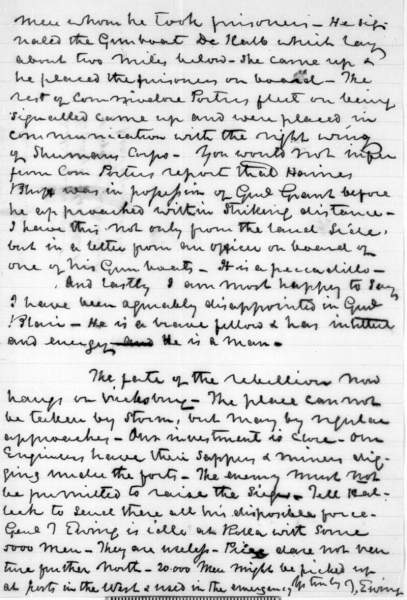 men whom he took prisoners - He sig-
naled the Gunboat De Kalb which lay
about two miles below - She came up &
he placed the prisoners on board - The
rest of Commodore Porters fleet on being
signalled came up and were placed in
communication with the right wing
of Shermans Corps - You would not infer
from Com Porters report that Haines
Bluff was in possession of Genl Grant before
he approached within striking distance -
I have this not only from the land side,
but in a letter from an officer on board of
one of his Gun boats - It is a peccadillo -
And lastly I am most happy to say
I have been agreeably disappointed in Genl
Blair - He is a brave fellow & has intellect
and energy and He is a man -
The fate of the rebellion now
hangs on Vicksburg - The place cannot
be taken by storm, but may by regular
approaches - Our investment is close - Our
Engineers have their sappers & miners dig-
ging under the forts - The enemy must not
be permitted to raise the Siege - Tell Hal-
leck to send there all his disposable force -
Genl T Ewing is idle at Rolla with some
5000 men - They are useless - Price dare not ven
ture further North - 20.000 Men might be picked up
at posts in the West & used in the emergency Yrs truly T, Ewing